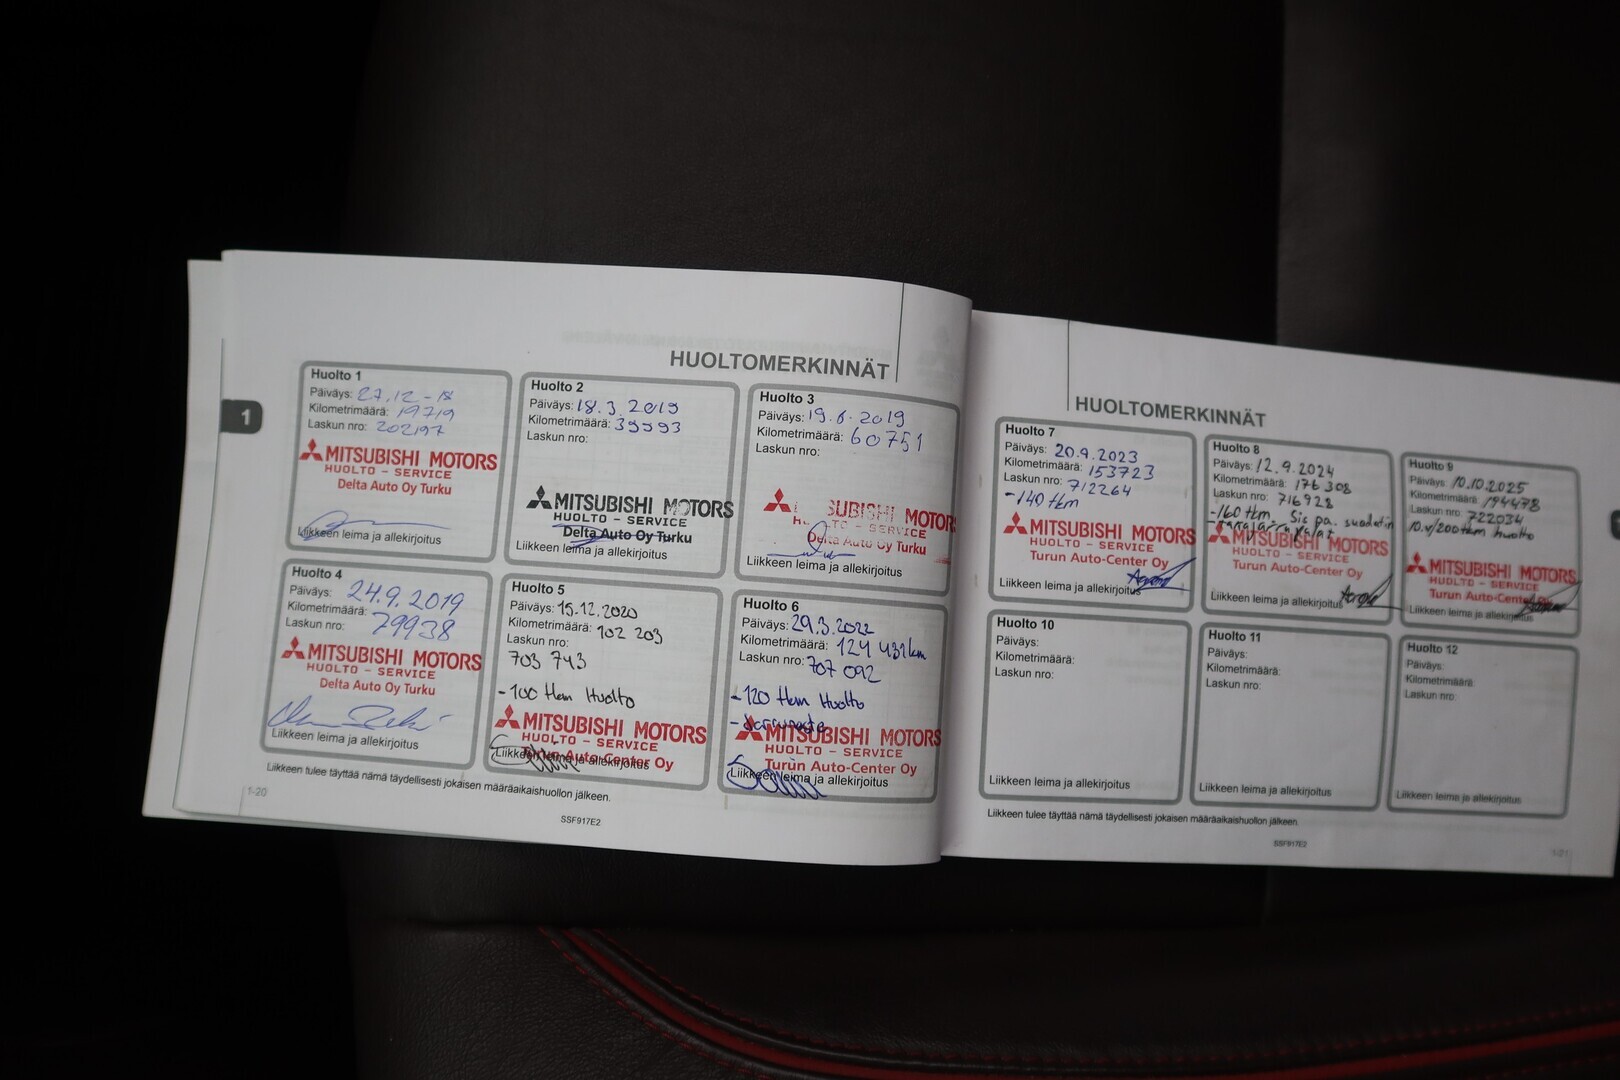 HUOLTOMERKINNÄT
1
Huolto 1
Päiväys: 27.12-18
Kilometrimäärä: 19719
Laskun nro: 202197
MITSUBISHI MOTORS
HUOLTO - SERVICE
Delta Auto Oy Turku
Liikkeen leima ja allekirjoitus
Huolto 2
Päiväys: 18.3.2019
Kilometrimäärä: 39993
Laskun nro:
MITSUBISHI MOTORS
HUOLTO - SERVICE
Delta Auto Oy Turku
Liikkeen leima ja allekirjoitus
Huolto 3
Päiväys: 19.6.2019
Kilometrimäärä: 60751
Laskun nro:
SUBISHI MOTORS
TO - SERVICE
Delta Auto Oy Turku
Liikkeen leima ja allekirjoitus
Huolto 4
Päiväys: 24.9.2019
Kilometrimäärä: 79938
Laskun nro:
MITSUBISHI MOTORS
HUOLTO - SERVICE
Delta Auto Oy Turku
Liikkeen leima ja allekirjoitus
Huolto 5
Päiväys: 15.12.2020
Kilometrimäärä: 102 203
Laskun nro:
703 743
-100 tkm Huolto
MITSUBISHI MOTORS
HUOLTO - SERVICE
Turun Auto-Center Oy
Liikkeen leima ja allekirjoitus
Huolto 6
Päiväys: 29.3.2022
Kilometrimäärä: 124 431km
Laskun nro: 707 092
-120 tkm Huolto
-Jarruneste
MITSUBISHI MOTORS
HUOLTO - SERVICE
Turun Auto-Center Oy
Liikkeen leima ja allekirjoitus
Liikkeen tulee täyttää nämä täydellisesti jokaisen määräaikaishuollon jälkeen.
1-20
SSF917E2
HUOLTOMERKINNÄT
Huolto 7
Päiväys: 20.9.2023
Kilometrimäärä: 153723
Laskun nro: 712264
-140 tkm
MITSUBISHI MOTORS
HUOLTO - SERVICE
Turun Auto-Center Oy
Liikkeen leima ja allekirjoitus
Huolto 8
Päiväys: 12.9.2024
Kilometrimäärä: 176 308
Laskun nro: 716928
-160 tkm Sis pa. suodatin
MITSUBISHI MOTORS
HUOLTO - SERVICE
Turun Auto-Center Oy
Liikkeen leima ja allekirjoitus
Huolto 9
Päiväys: 10.10.2025
Kilometrimäärä: 194478
Laskun nro: 722034
10.v/200tkm huolto
MITSUBISHI MOTORS
HUOLTO - SERVICE
Turun Auto-Center Oy
Liikkeen leima ja allekirjoitus
Huolto 10
Päiväys:
Kilometrimäärä:
Laskun nro:
Liikkeen leima ja allekirjoitus
Huolto 11
Päiväys:
Kilometrimäärä:
Laskun nro:
Liikkeen leima ja allekirjoitus
Huolto 12
Päiväys:
Kilometrimäärä:
Laskun nro:
Liikkeen leima ja allekirjoitus
Liikkeen tulee täyttää nämä täydellisesti jokaisen määräaikaishuollon jälkeen.
SSF917E2
1-21